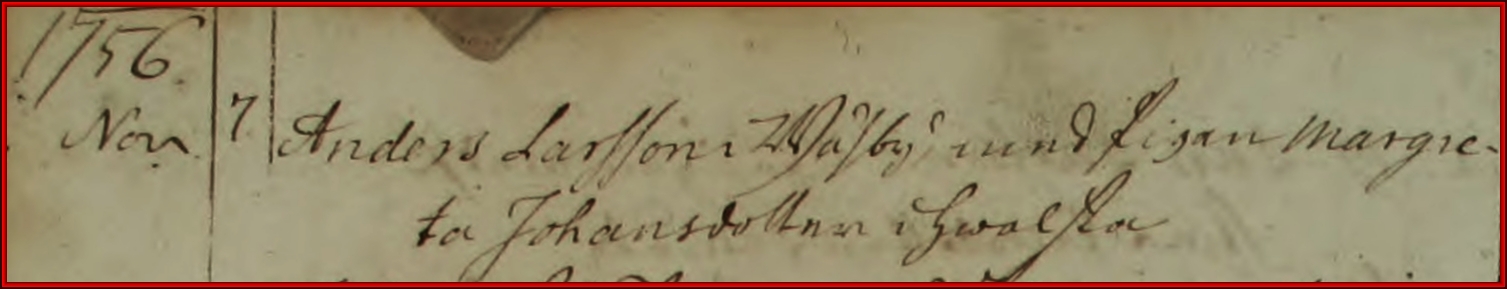 1756
Nov. 7 Anders Larsson i Wäsby med Pigan Margre-
ta Johansdotter i Hwalsta